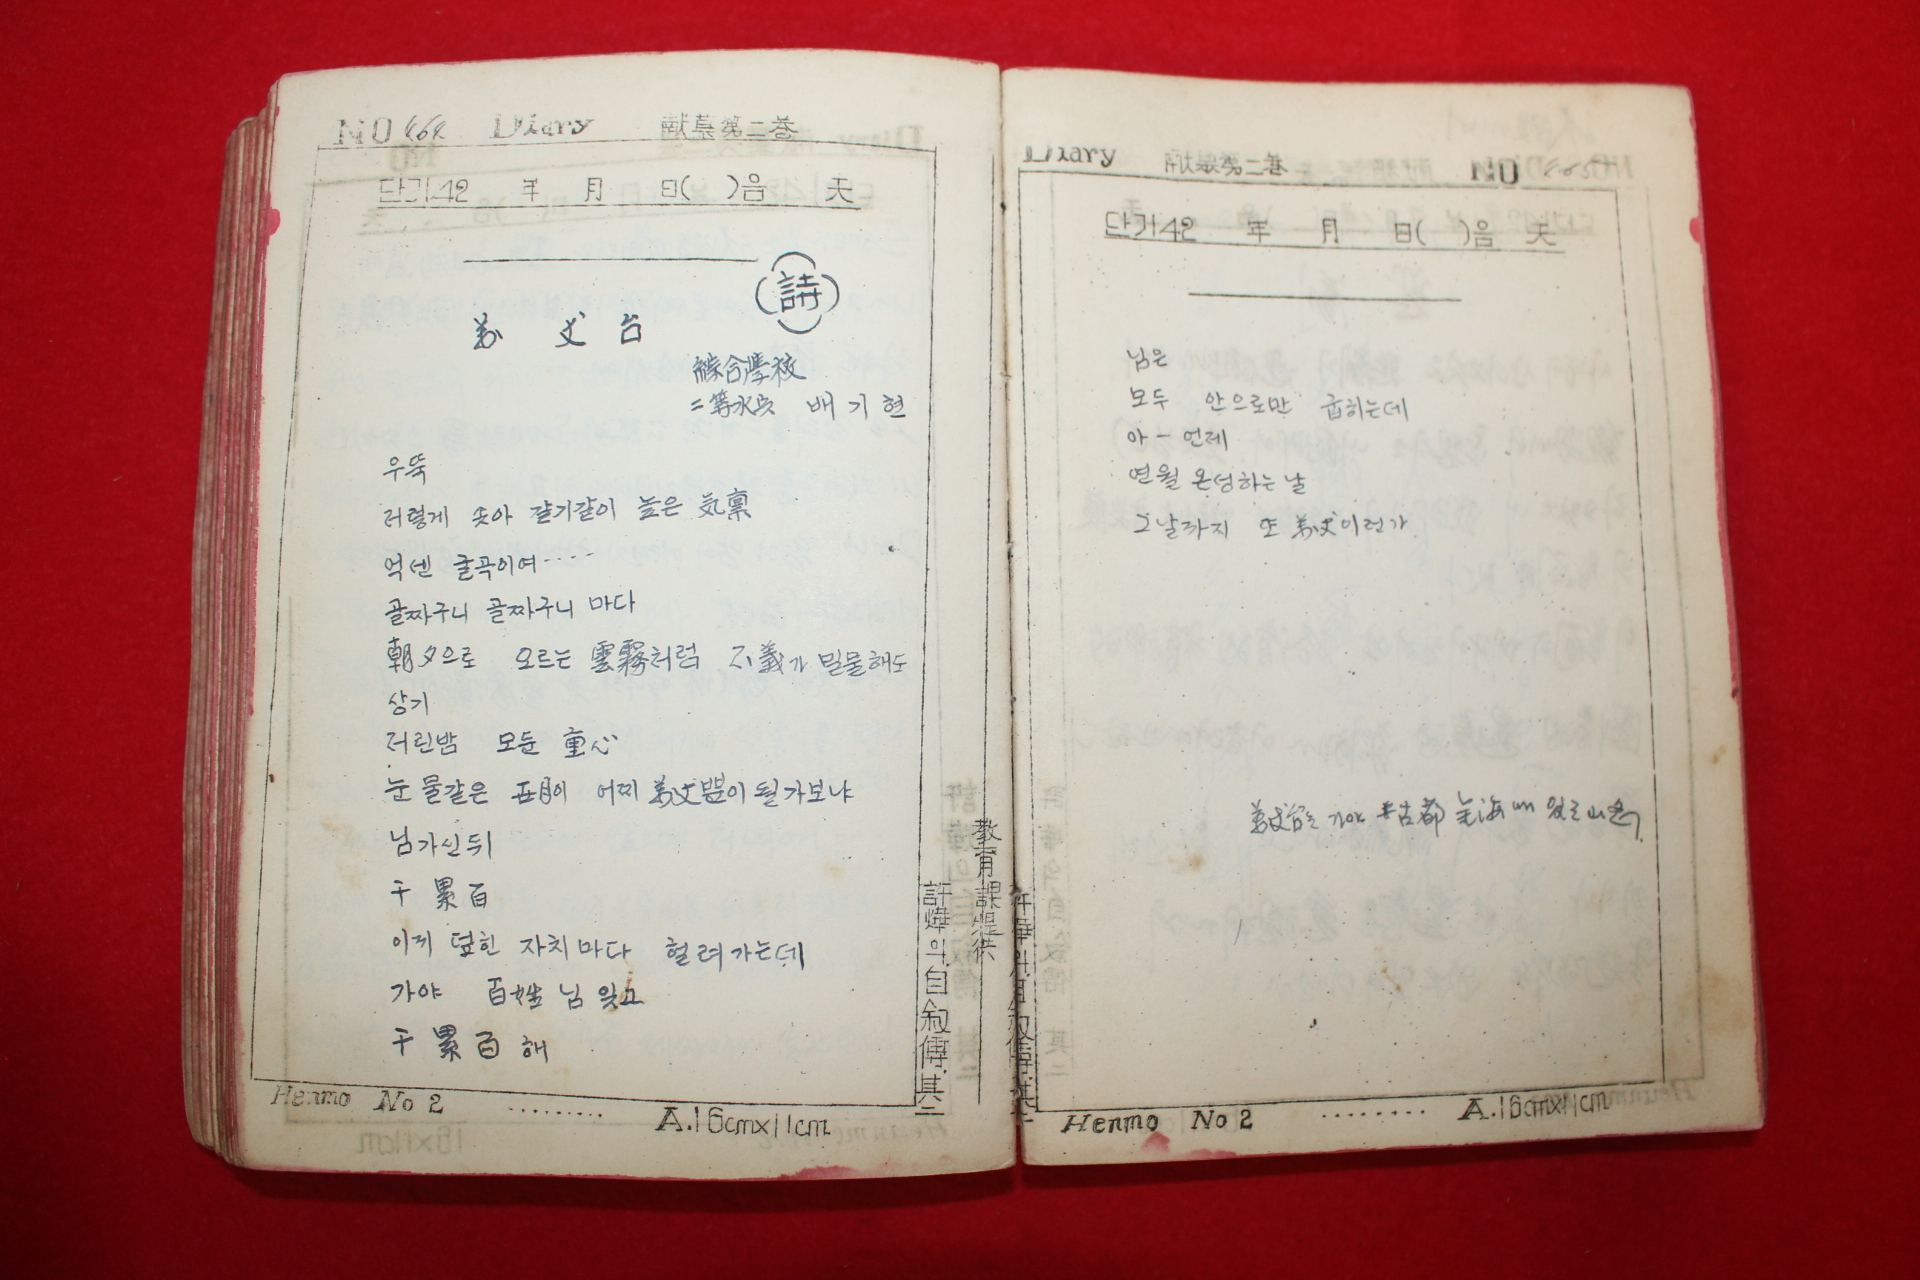 NO 464 Diary 献墓第二巻
단기42 年 月 日( )음 天
詩
芬 丈 台
綜合學校
二等水兵 배 기 현
우뚝
러렇게 솟아 갈기같이 높은 気稟
억센 굴곡이여····
골짜구니 골짜구니 마다
朝夕으로 오르는 雲霧처럼 不義가 밀물해도
상기
저린밤 모둔 童心
눈물같은 五月이 어찌 뿐이 될가보냐
님가신뒤
千累百
이끼 덮힌 자치마다 헐려가는데
가야 百姓 님 잊고
千累百 해
Henmo No 2 ········· A.16cmx11cm
許燁의 自叙傳 其二
教育課提供
Diary 献墓第二巻 NO
단기42 年 月 日( )음 天
님은
모두 안으로만 굽히는데
아 - 언제
연월 온성하는날
그날까지 또 이런가
가야 古都 金海에 있는
許燁의 自叙傳 其二
Henmo No 2 ········· A.16cmx11cm